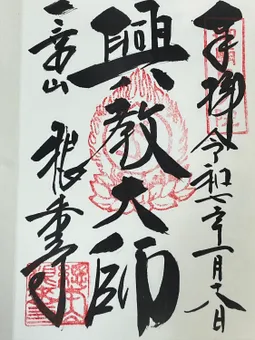 奉拝
令和七年一月八日
興教大師
一乗山
根来寺